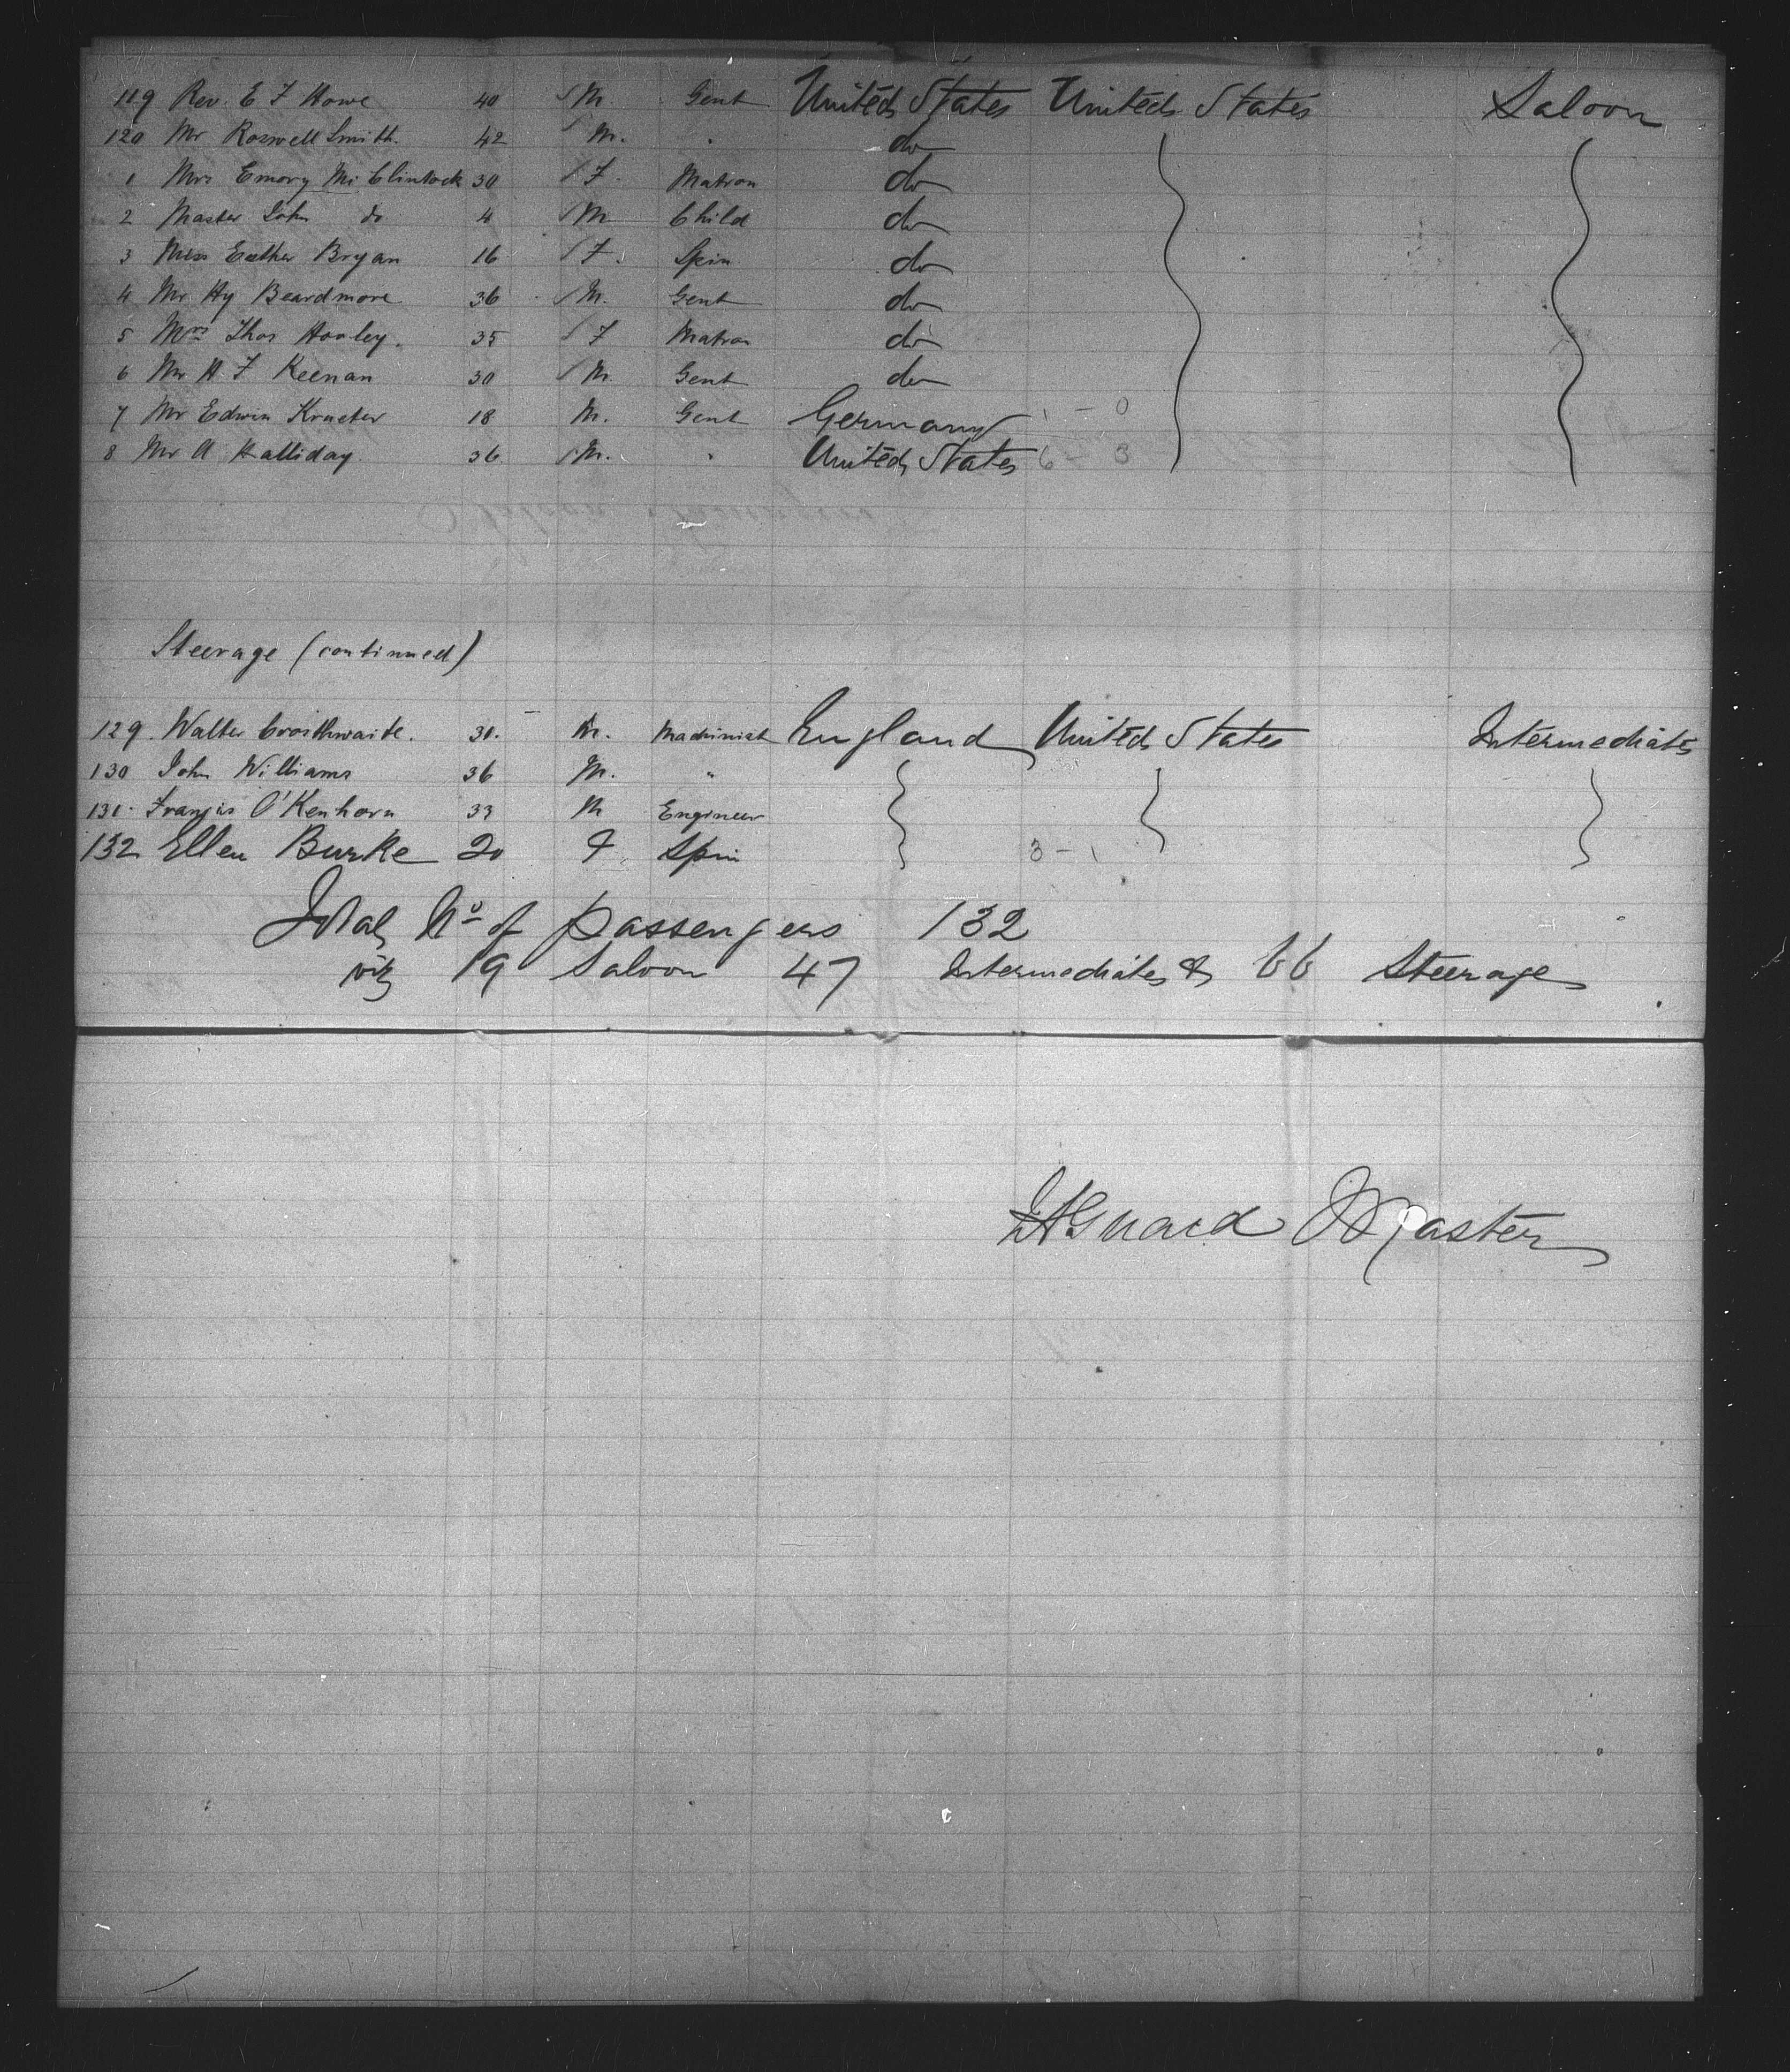 119 Rev. E F Howe 40 M. Gent United States United States Saloon
120 Mr Roswell Smith. 42 M. " do
1 Mrs Emory Mc Clintock 30 F. Matron do
2 Master John do 4 M Child do
3 Miss Esther Bryan 16 F. Spin do
4 Mr Hy Beardmore 36 M. Gent do
5 Mrs Thos Hooley. 35 F Matron do
6 Mr H F Keenan 30 M. Gent do
7 Mr Edwin 18 M. Gent Germany 1 - 0
8 Mr A Halliday. 36 M. " United States 6 - 3
Steerage (continued)
129. Walter Crosthwaite. 30. M. Machinist England United States Intermediate
130 John Williams 36 M. "
131. Francis O'Kenhorn 33 M Engineer
132 Ellen Burke 20 F Spin 3 - 1
Total No of passengers 132
viz 19 Saloon 47 Intermediate & 66 Steerage
Guard Master